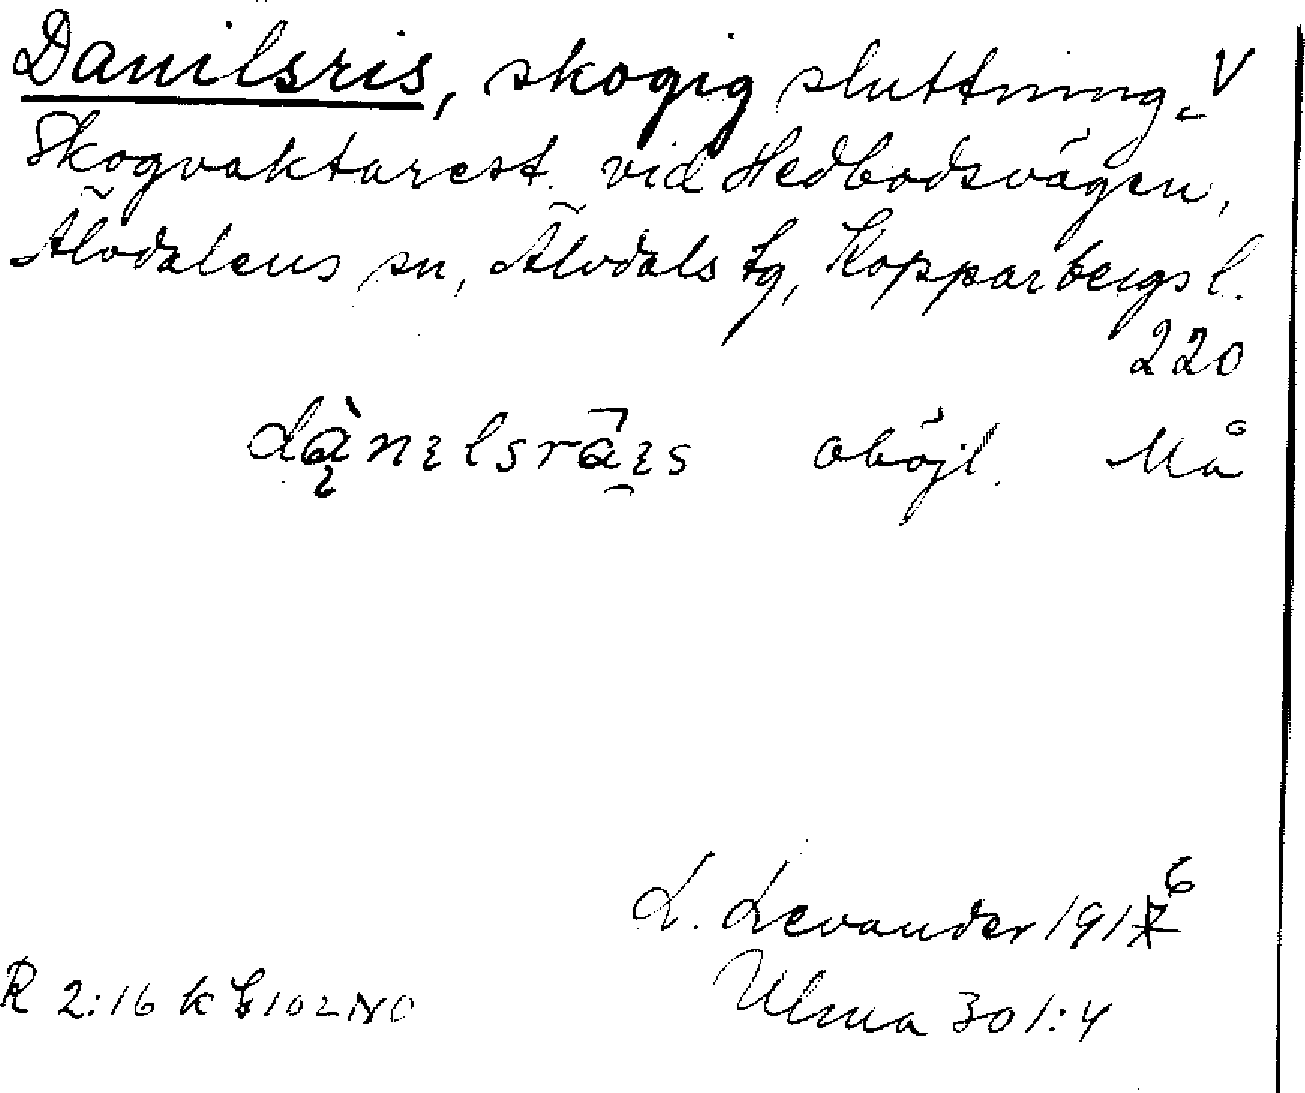 Danilsris, skogig sluttning V
Skogvaktarest. vid Hedbodsvägen,
Älvdalens sn, Älvdals tg, Kopparbergs l.
220
dànɩlsrâɩs oböjl. Må
L. Levander 1916
R 2:16 k 102 NO
Ulma 301:4